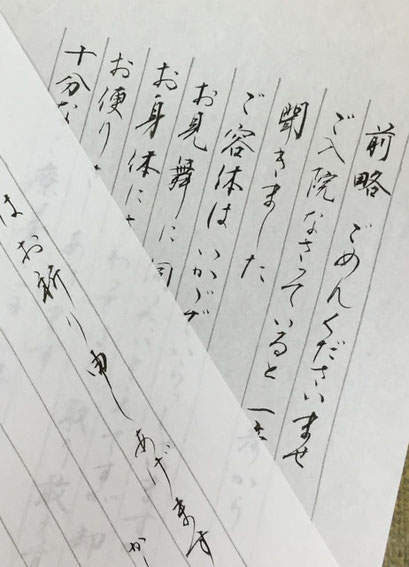 前略 ごめんくださいませ
ご入院なさっていると
聞きました
ご容体はいかが
お見舞に伺
お身体に
お便り
十分な
はお祈り申しあげます
か